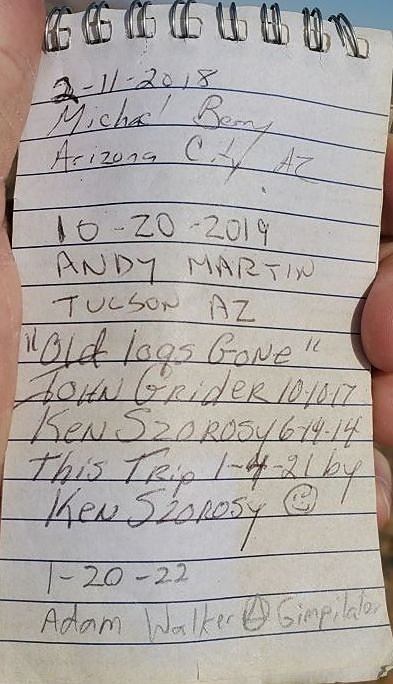 2-11-2018
Michael Berry
Arizona City AZ
10-20-2019
ANDY MARTIN
TUCSON AZ
"Old logs GoNe"
JOHN GRiDER 10-10-17
KeN SZOROSY 6-14-14
This TRip 1-4-21 by
KeN SZOROSY
1-20-22
Adam Walker A Gimpilator